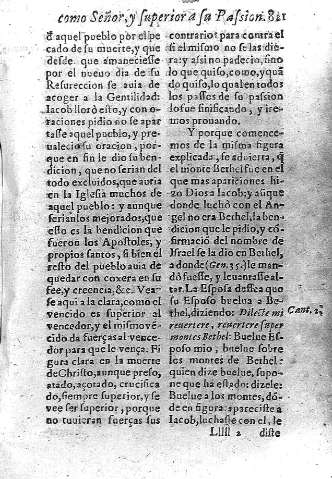 como Señor, y superior a su Passion. 821
ẽ aquel pueblo por el pe
cado de su muerte, y que
desde que amaneciesse
por el nueuo dia de su
Resureccion se auia de
acoger a la Gentilidad:
Iacob lloró esto, y con o-
raciones pidio no se apar
tasse aquel pueblo, y pre-
ualecio su oracion, por-
que en fin le dio su bendi-
cion, que no serian del
todo excluidos, que auria
en la Iglesia muchos de
aquel pueblo: y aunque
serian los mejorados, que
esto es la bendicion que
fueron los Apostoles, y
propios santos, si bien el
resto del pueblo auia de
quedar con coxera en su
fee, y creencia, &c. Vea-
se aqui a la clara, como el
vencido es superior al
vencedor, y el mismo vē-
cido da fuerças al vence-
dor para que le vença. Fi
gura clara en la muerte
de Christo, aunque preso,
atado, açotado, crucifica
do, siempre superior, y se
vee ser superior, porque
no tuuieran fuerças sus
contrarios para contra el
si el mismo no se las die-
ra: y assi no padecio, sino
lo que quiso, como, y quā
do quiso, lo qual en todos
los passos de su passion
fue sinificando, y ire-
mos prouando.
Y porque comence-
mos de la misma figura
explicada, se aduierta, q̃
el monte Bethel fue en el
que mas apariciones hi-
zo Dios a Iacob; y aunque
donde luchò con el An-
gel no era Bethel, la ben-
dicion que le pidio, y cō-
firmacïo del nombre de
Israel se la dio en Bethel,
a donde (Gen. 35.) le man
dò fuesse, y leuantasse al-
tar. La Esposa dessea que
su Esposo buelua a Be-
thel, diziendo: Dilecte mi
reuertere, reuertere super
montes Bethel: Buelue Es-
poso mio, buelue sobre
los montes de Bethel:
quien dize buelue, supo-
ne que ha estado: dizele:
Buelue a los montes, dō-
de en figura apareciste a
Iacob, luchaste con el, le
Cant. 2.
Lllll 2 diste